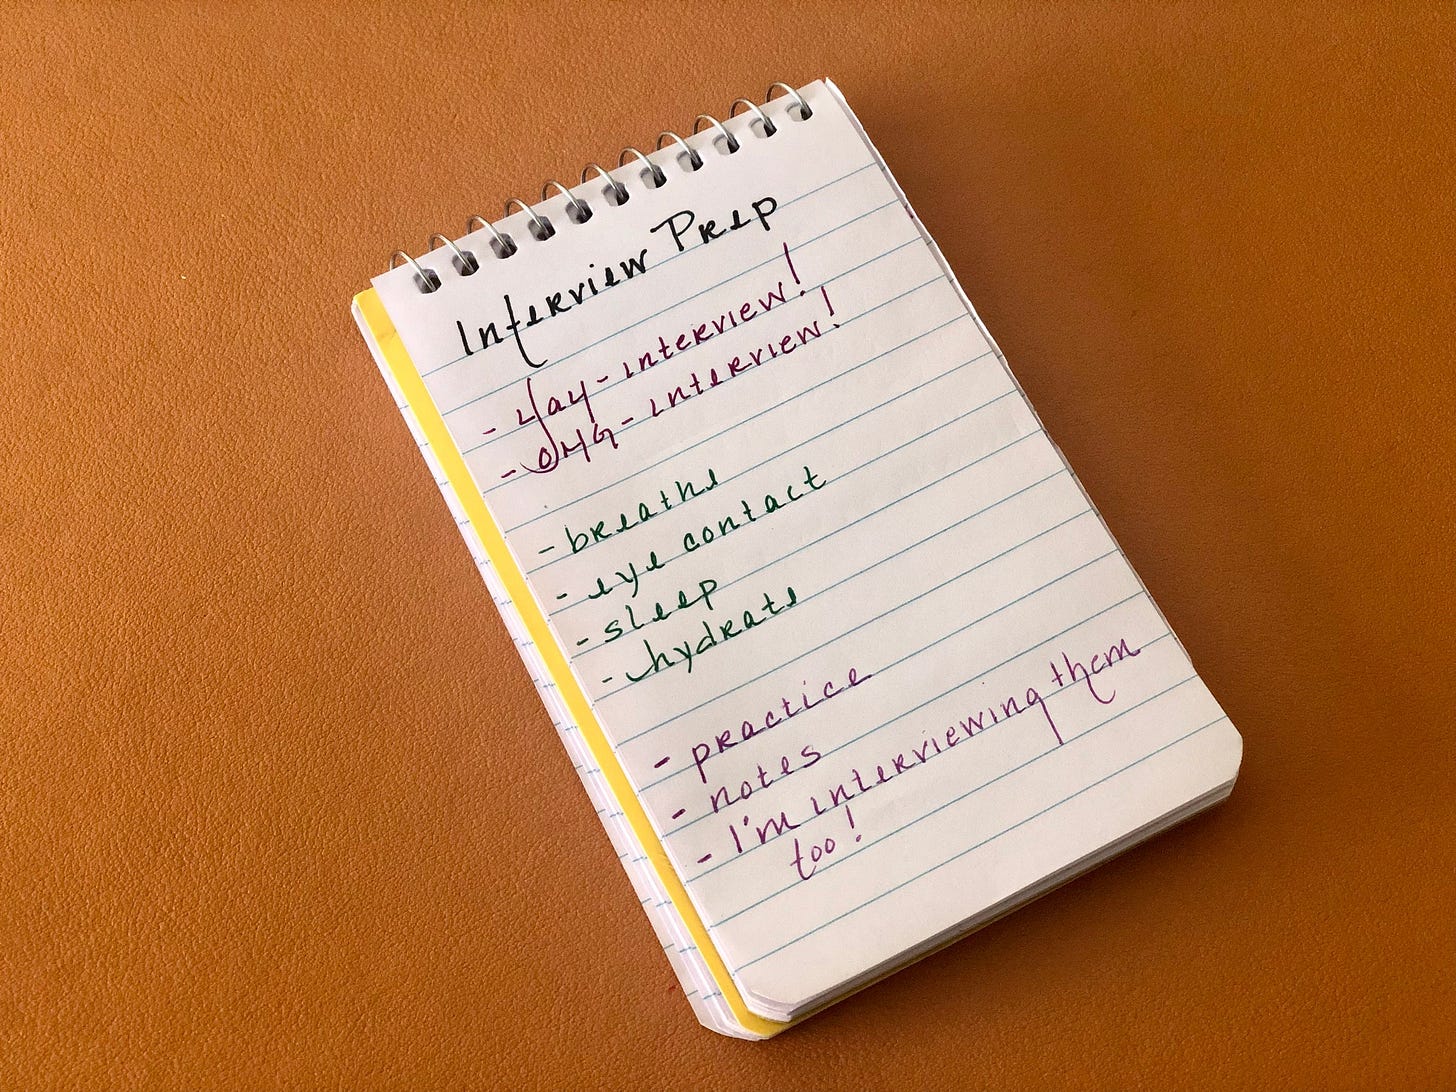 Interview Prep
- Yay - interview!
- OMG - interview!
- breathe
- eye contact
- sleep
- hydrate
- practice
- notes
- I'm interviewing them
too!